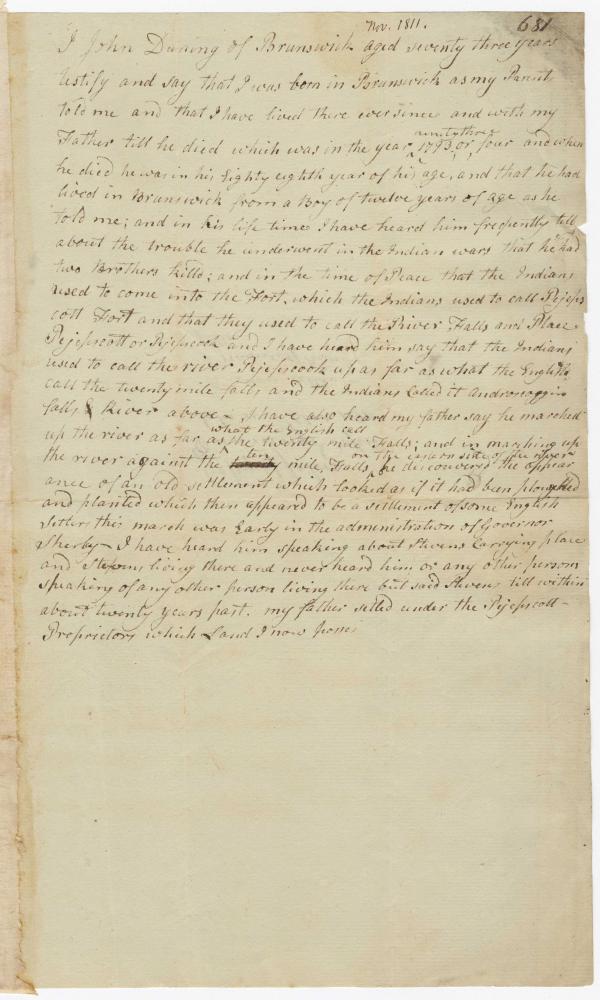 Nov. 1811.
681
I John Duning of Brunswick aged seventy three years
testify and say that I was born in Brunswick as my Parents
told me and that I have lived there ever since and with my
Father till he died which was in the year 1793, or, four and when
ninty three
he died he was in his Eighty eighth year of his age, and that he had
lived in Brunswick from a Boy of twelve years of age as he
told me; and in his life time I have heard him frequently tell
about the trouble he underwent in the Indian wars that he had
two Brothers killd; and in the time of Peace that the Indians
used to come into the Fort, which the Indians used to call Pejeps
cott Fort and that they used to call the River Falls and Place
Pejepscott or Pejepscook and I have heard him say that the Indians
used to call the river Pejepscook up as far as what the English
call the twenty mile falls and the Indians called it Androscoggin
falls & River above - I have also heard my father say he marched
what the English call
up the river as far as the twenty mile Falls; and in marching up
ten on the eastern side of the river
the river against the twenty mile Falls, he discovered the appear
ance of an old settlement which looked as if it had been ploughed
and planted which then appeared to be a settlement of some English
this march was Early in the administration of Governor
Sherley - I have heard him speaking about Stevens Carrying place
and Stevens living there and never heard him or any other person
speaking of any other person living there but said Stevens till within
about twenty years past. my father setled under the Pejepscott
Proprietors which Land I now